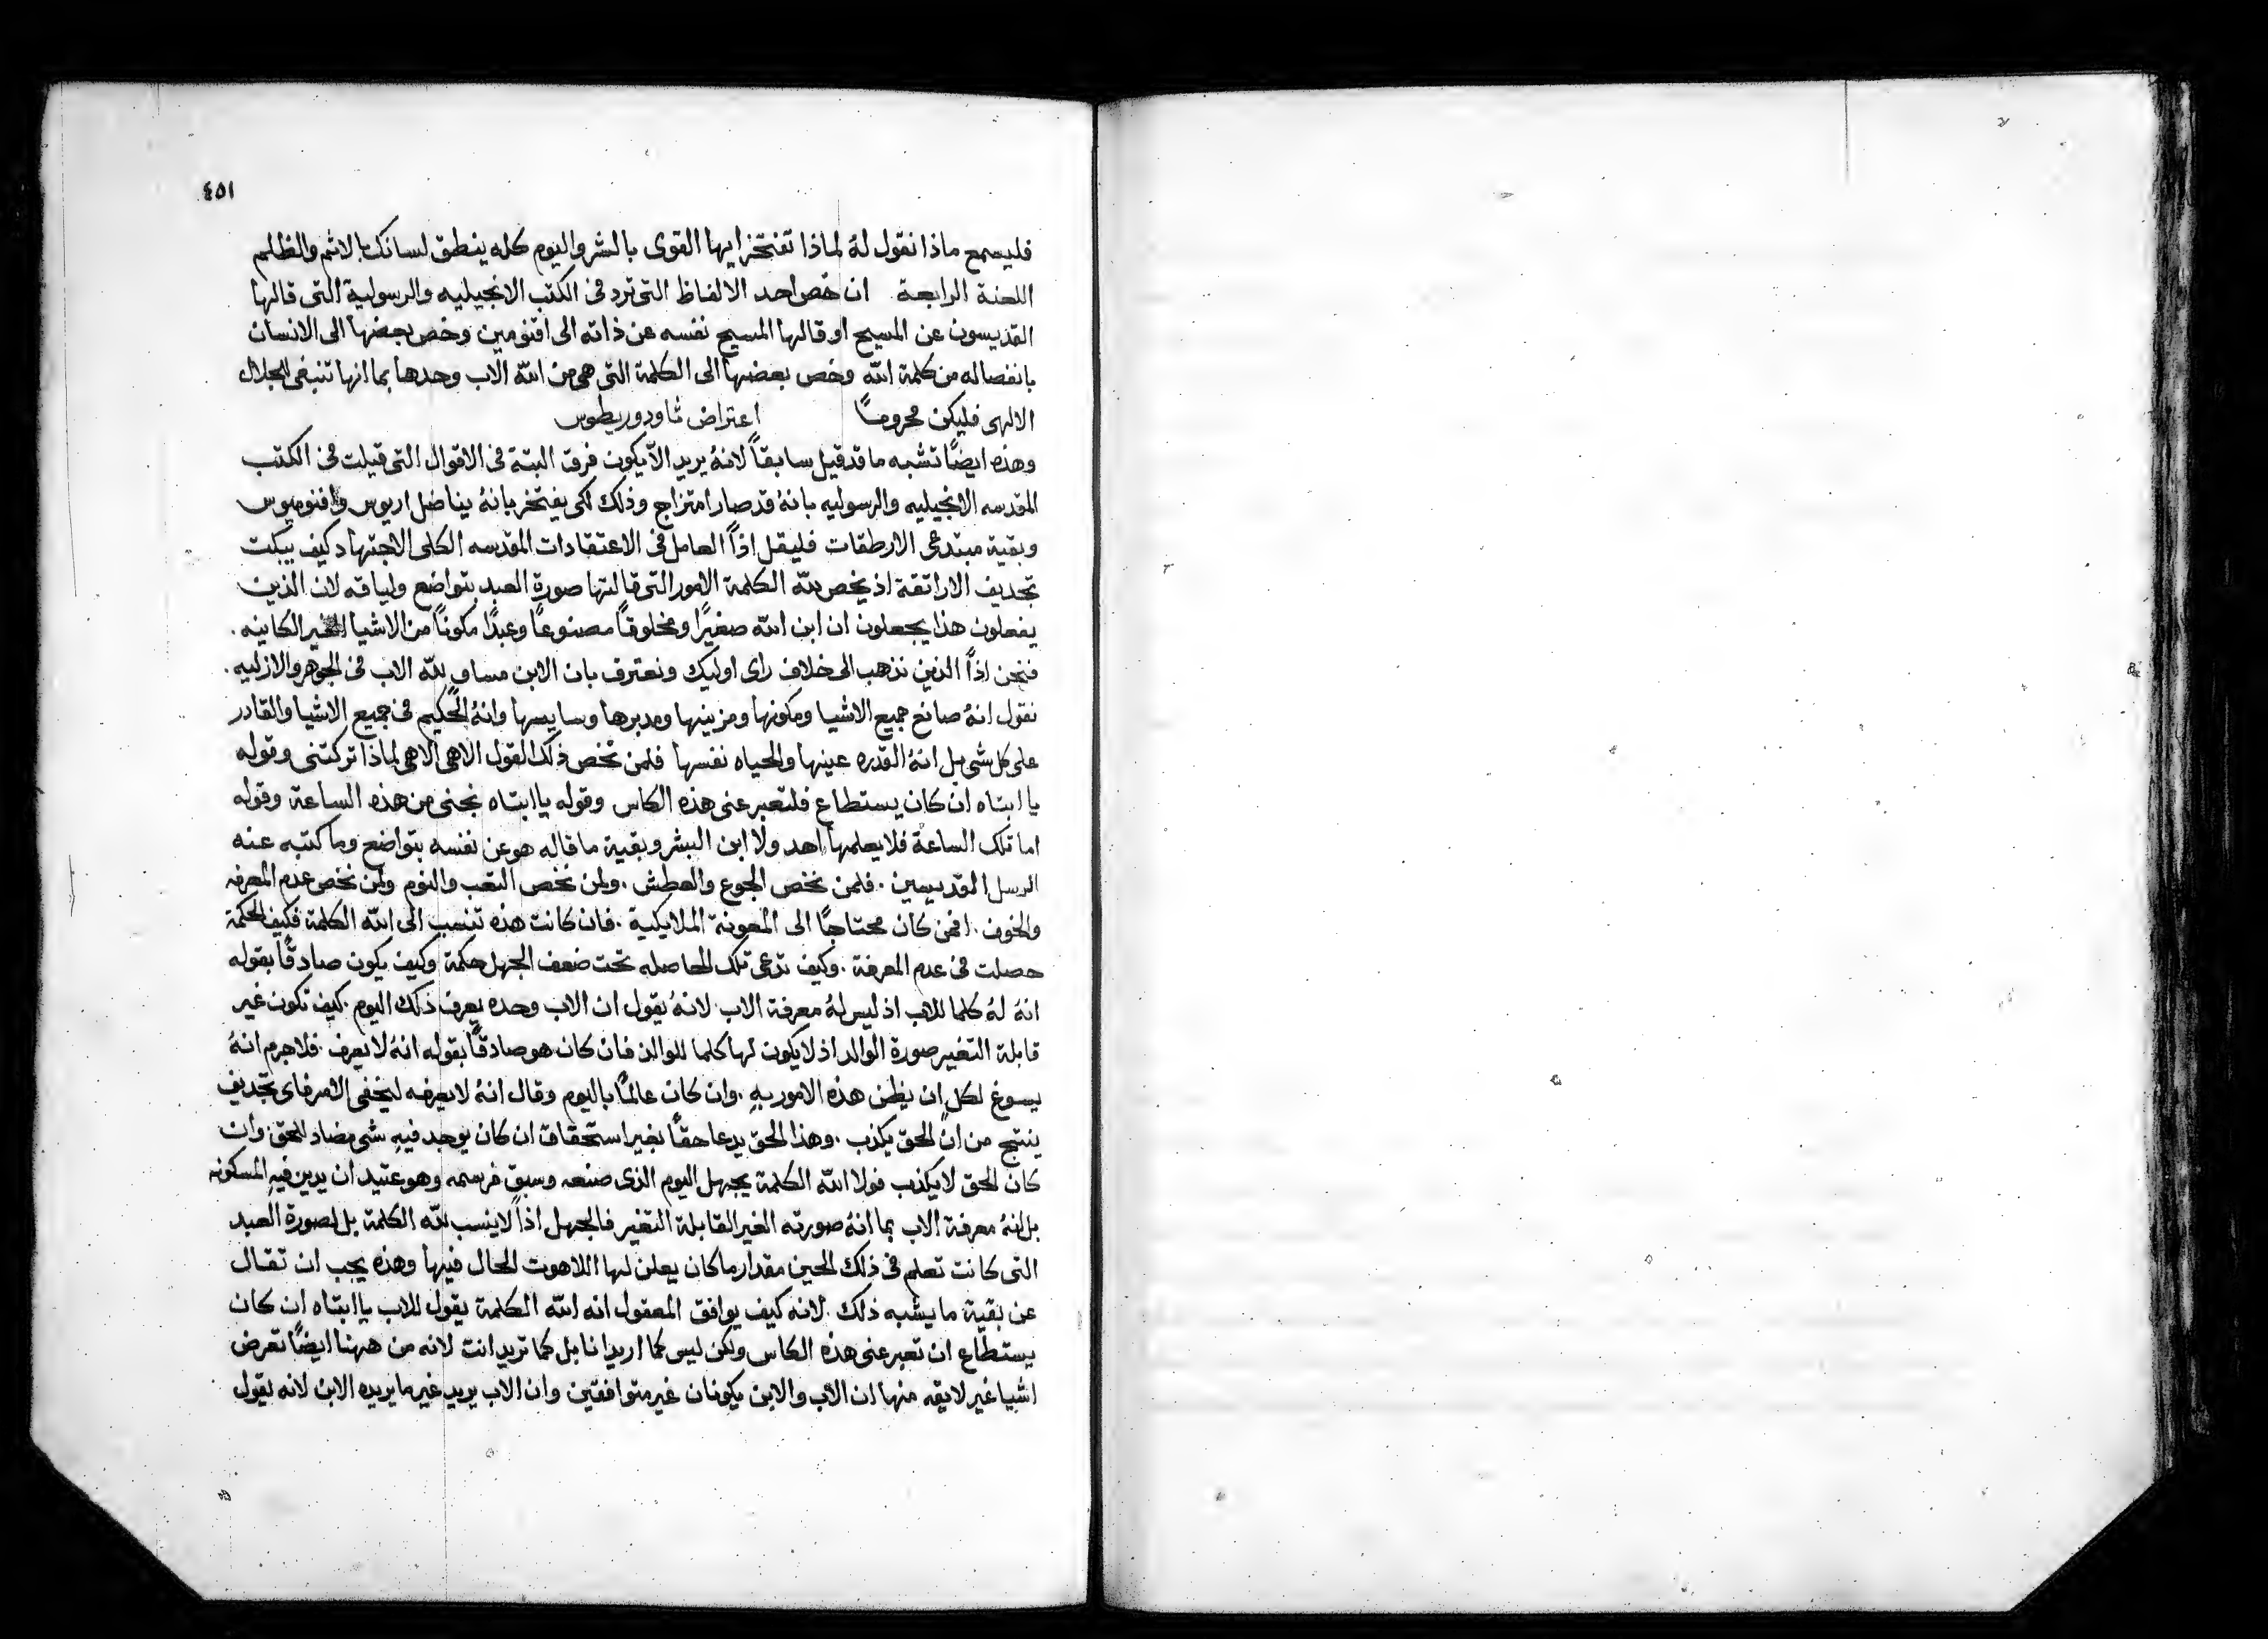 ٤٥١
فليسمع ماذا نقول لهُ لماذا تفتخر ايها القوى بالشر واليوم كله ينطق لسانك بالاثم والظلم
اللعنة الرابعة ان خص احد الالفاظ التى ترد فى الكتب الانجيليه والرسولية التى قالها
القديسون عن المسيح او قالها المسيح نفسه عن ذاته الى اقنومين وخص بعضها الى الانسان
بانفصاله من كلمة الله وخص بعضها الى الكلمة التى هى من الله الاب وحدها بما انها تنبغى للجلال
الالهى فليكن محرومًا اعتراض ثاودوريطوس
وهذه ايضًا تشبه ما قد قيل سابقًا لانهُ يريد الّا يكون فرق البتة فى الاقوال التى قيلت فى الكتب
المقدسه الانجيليه والرسوليه بانهُ قد صار امتزاج وذلك لكى يفتخر بانهُ يناضل اريوس وافنوميوس
وبقية مبتدعى الارطقات فليقل اذًا العامل فى الاعتقادات المقدسه الكلى الاجتهاد كيف يبكت
تجديف الاراتقة اذ يخص لله الكلمة الامور التى قالتها صورة العبد بتواضع ولياقه لان الذين
يفعلون هذا يجعلون ان ابن الله صغيرًا ومخلوقًا مصنوعًا وعبدًا مكونًا من الاشيا الغير الكاينه.
فنحن اذًا الذين نذهب الى خلاف راى اوليك ونعترف بان الابن مساوٍ لله الاب فى الجوهر والازليه.
نقول انهُ صانع جميع الاشيا ومكونها ومزينها ومدبرها وسايسها وانهُ الحكيم فى جميع الاشيا والقادر
على كل شى بل انهُ القدره عينها والحياه نفسها فلمن نخص ذلك القول الاهى الاهى لماذا تركتنى وقوله
يا ابتاه ان كان يستطاع فلتعبر عنى هذه الكاس وقوله يا ابتاه نجنى من هذه الساعة وقوله
اما تلك الساعة فلا يعلمها احد ولا ابن البشر وبقية ما قاله هو عن نفسه بتواضع وما كتبه عنه
الرسل المقدسين. فلمن نخص الجوع والعطش. ولمن نخص التعب والنوم ولمن نخص عدم المعرفه
والخوف. افمن كان محتاجًا الى المعونة الملايكية. فان كانت هذه تنسب الى الله الكلمة فكيف الحكمة
حصلت فى عدم المعرفة. وكيف تدعى تلك الحاصله تحت ضعف الجهل حكمة وكيف يكون صادقًا بقوله
انهُ لهُ كلما للاب اذ ليس لهُ معرفة الاب. لانهُ يقول ان الاب وحده يعرف ذلك اليوم. كيف تكون غير
قابلة التغير صورة الوالد اذ لا يكون لها كلما للوالد فان كان هو صادقًا بقوله انهُ لا يعرف. فلا جرم انهُ
يسوغ لكلٍ ان يظن هذه الامور بهِ. وان كان عالمًا باليوم وقال انهُ لا يعرفه ليخفى الامر فاى تجديف
ينتج من ان الحق يكذب. وهذا الحق يدعا حقًا بغير استحقاق ان كان يوجد فيهِ شى مضاد للحق. وان
كان الحق لا يكذب فولا الله الكلمة يجهل اليوم الذى صنعه وسبق فرسمه وهو عتيد ان يدين فيهِ المسكونه
بل لهُ معرفة الاب بما انهُ صورته الغير القابلة التغير فالجهل اذًا لا ينسب لله الكلمة بل لصورة العبد
التى كانت تعلم فى ذلك الحين مقدار ما كان يعلن لها اللاهوت الحال فيها وهذه يجب ان تقال
عن بقية ما يشبه ذلك. لانه كيف يوافق المعقول انه الله الكلمة يقول للاب يا ابتاه ان كان
يستطاع ان تعبر عنى هذه الكاس ولكن ليس كما اريد انا بل كما تريد انت لانه من ههنا ايضًا تعرض
اشيا غير لايقه منها ان الاب والابن يكونان غير متوافقين وان الاب يريد غير ما يريده الابن لانه يقول